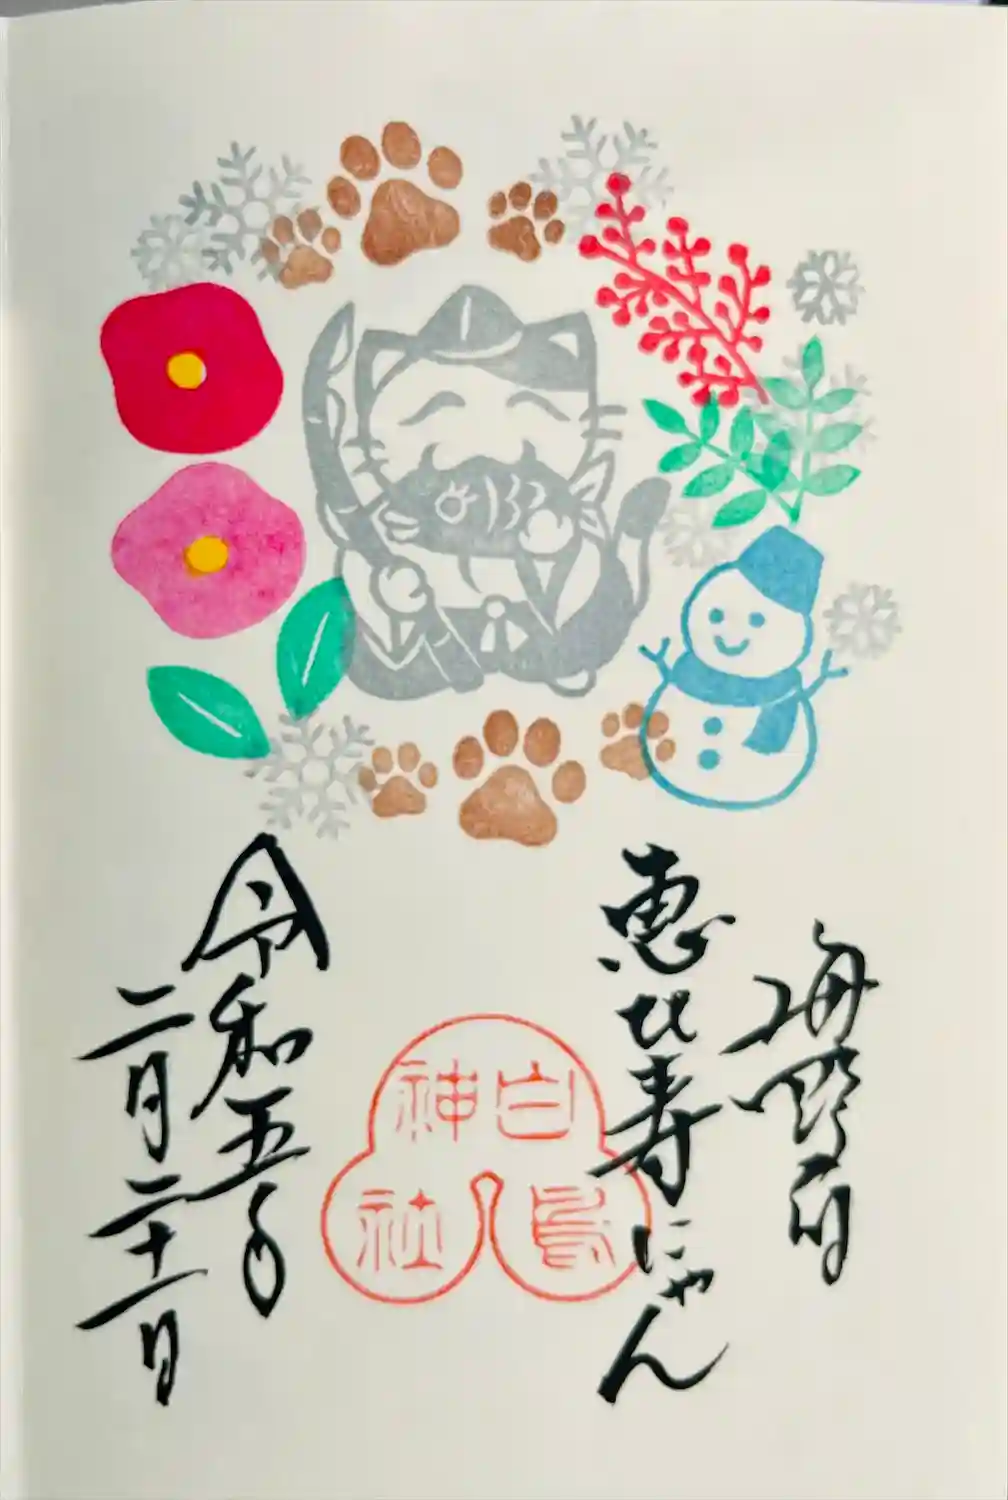 海野宿
恵比寿にゃん
白鳥
神社
令和五年
二月二十一日